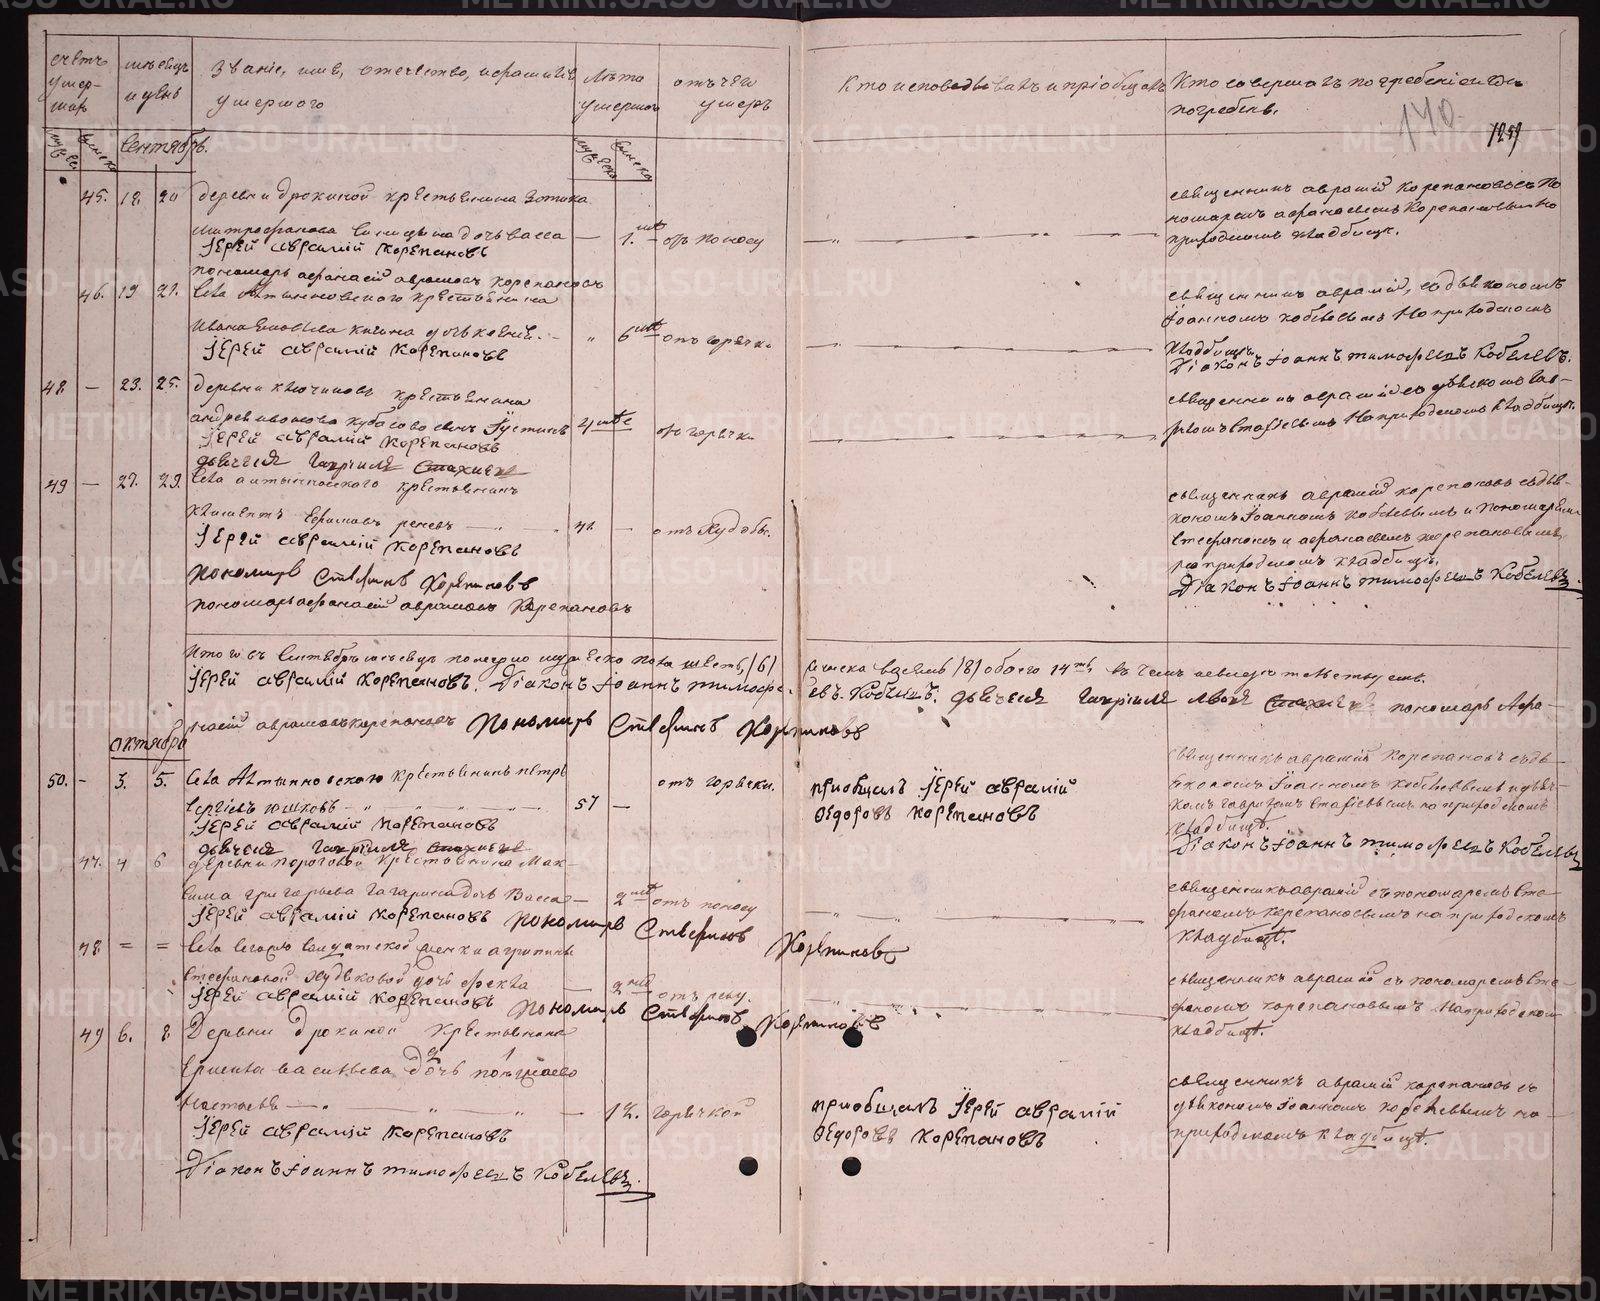 счетъ умер- шихъ
мѣсяцъ и день
Званіе, имя, отечество, и фамилія умершаго
Лѣта умершаго
отъ чего умеръ
Кто исповѣдывалъ и пріобщалъ
Кто совершалъ погребеніе и гдѣ погребенъ.
140
мужеска
женска
Сентябрь.
мужеска
женска
45. 18. 20 деревни Дрокиной крестьянина
Митрофанова дочь Васса — 1. отъ поносу
Іерей Авраамій Корепановъ
пономарь Афанасій Авраамовъ Корепановъ
священникъ Авраамій Корепановъ съ по
номаремъ Афанасіемъ Корепановымъ на
приходскомъ кладбищѣ.
46. 19 21. села Алтынновскаго крестьянина
Ивана дочь 6 отъ горячки
Іерей Авраамій Корепановъ
священникъ Авраамій, съ дьякономъ
Іоанномъ Кобелевымъ на приходскомъ
кладбищѣ.
Діаконъ Іоаннъ Тимофеевъ Кобелевъ.
48 — 23. 25. деревни Ключиковъ крестьянина
Андрея Иванова сынъ Іустинъ 4 отъ горячки
Іерей Авраамій Корепановъ
дьячекъ Гавріилъ Стахиевъ
священникъ Авраамій съ дьячкомъ Гав-
ріломъ Стахиевымъ на приходскомъ кладбищѣ.
49 — 27. 29. села Алтынновскаго крестьянинъ
Климентъ Ефимовъ — 41. — отъ худобы.
Іерей Авраамій Корепановъ
Пономарь Стефанъ Корепановъ
пономарь Афанасій Авраамовъ Корепановъ
священникъ Авраамій Корепановъ съ дья-
кономъ Іоанномъ Кобелевымъ и пономарями
Стефаномъ и Афанасіемъ Корепановыми,
на приходскомъ кладбищѣ.
Діаконъ Іоаннъ Тимофеевъ Кобелевъ.
Итого въ Сентябрѣ мѣсяцѣ померло мужеска пола шесть, /6/ женска восемь /8/ обоего 14ть, въ чемъ и свидѣтельствуемъ.
Іерей Авраамій Корепановъ. Діаконъ Іоаннъ Тимофеевъ Кобелевъ. дьячекъ Гавріилъ Стахиевъ пономарь Афа-
насій Авраамовъ Корепановъ Пономарь Стефанъ Корепановъ
Октябрь
50. — 3. 5. села Алтынновскаго крестьянинъ Петръ отъ горячки.
Сергіевъ Юшковъ — 57 —
Іерей Авраамій Корепановъ
дьячекъ Гавріилъ Стахиевъ
пріобщалъ Іерей Авраамій
Федоровъ Корепановъ
священникъ Авраамій Корепановъ съ дь-
якономъ Іоанномъ Кобелевымъ и дьяч-
комъ Гавріломъ Стахиевымъ на приходскомъ
кладбищѣ.
Діаконъ Іоаннъ Тимофеевъ Кобелевъ
47. 4 6 деревни Пороговой крестьянина Мак-
сима Григорьева Гагарина дочь Васса — 2 отъ поносу
Іерей Авраамій Корепановъ Пономарь Стефанъ Корепановъ
священникъ Авраамій съ пономаремъ Сте-
фаномъ Корепановымъ на приходскомъ
кладбищѣ.
48 = = села солдатской женки Агрипины
Стефановой дочь Фекла — 2 отъ реву.
Іерей Авраамій Корепановъ Пономарь Стефанъ Корепановъ
священникъ Авраамій съ пономаремъ Сте-
фаномъ Корепановымъ на приходскомъ
кладбищѣ.
49 6. 8. Деревни Дрокиной крестьянина
Васильева дочь
Настасья — 12. горячкой
Іерей Авраамій Корепановъ
Діаконъ Іоаннъ Тимофеевъ Кобелевъ.
пріобщалъ Іерей Авраамій
Федоровъ Корепановъ
священникъ Авраамій Корепановъ съ
дьякономъ Іоанномъ Кобелевымъ на
приходскомъ кладбищѣ.
METRIKI.GASO-URAL.RU